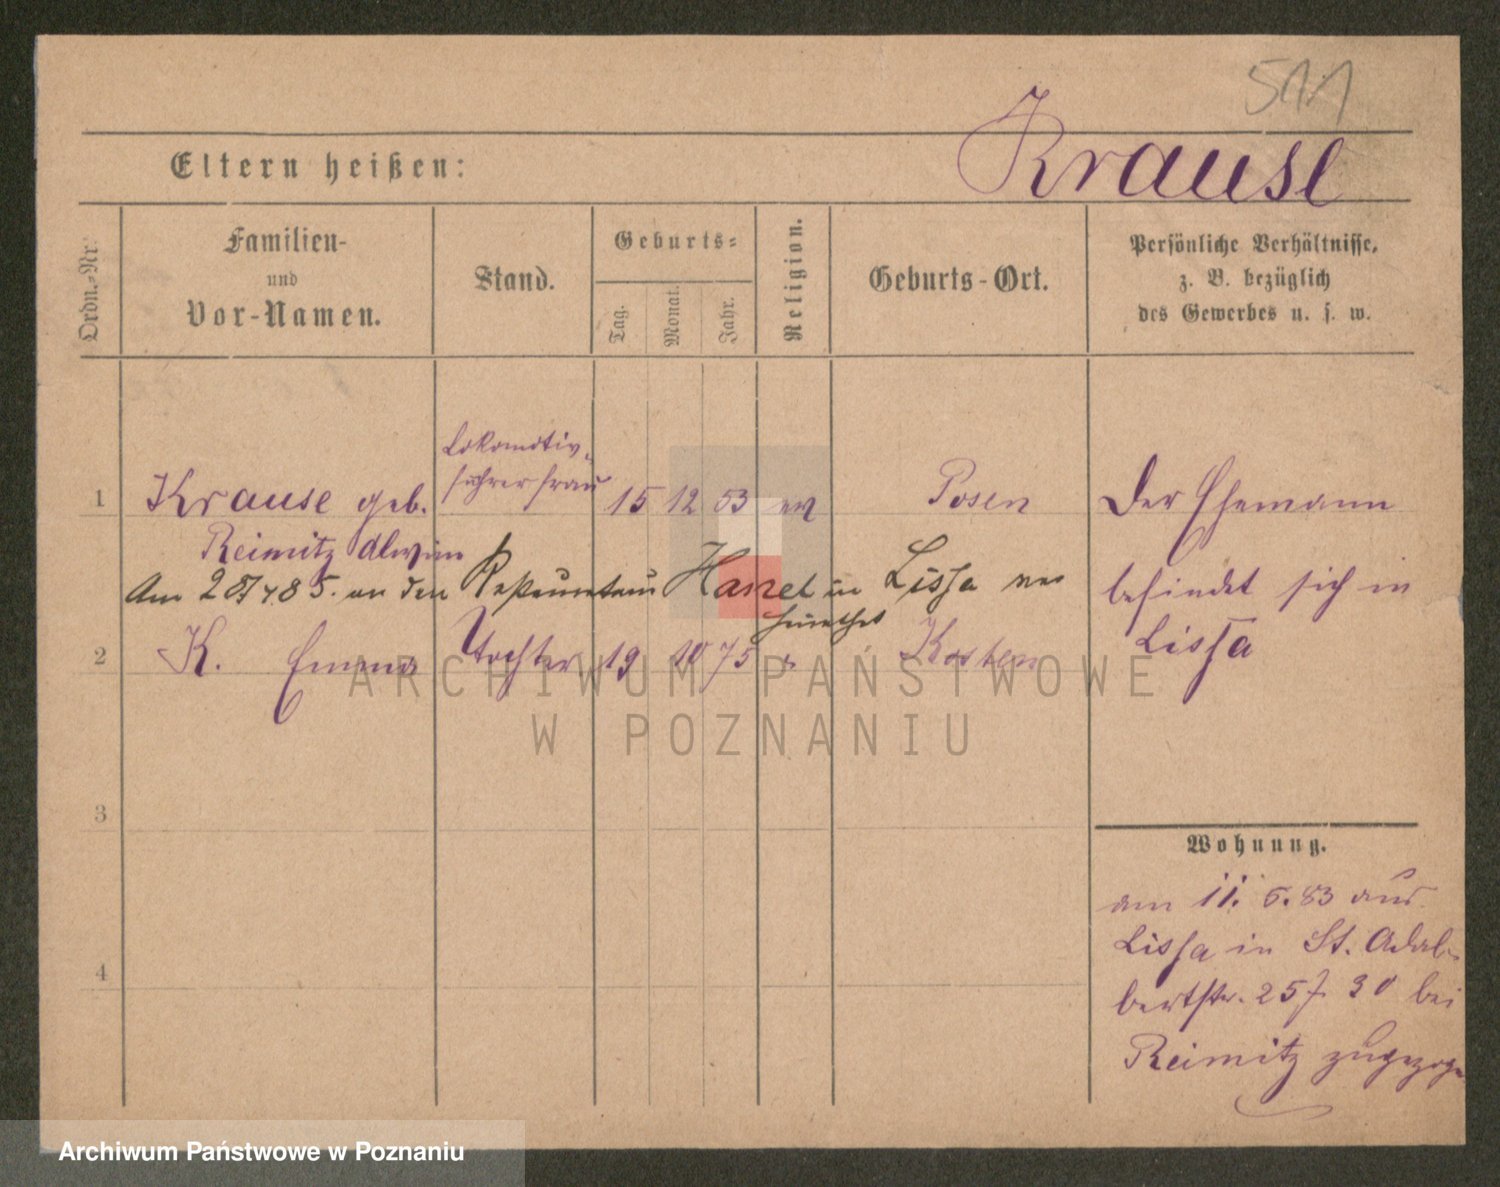 511
Krause
Eltern heißen:
Ordn.-Nr.
Familien-
und
Vor-Namen.
Stand.
Geburts-
Tag.
Monat.
Jahr.
Religion.
Geburts-Ort.
Persönliche Verhältnisse,
z. B. bezüglich
des Gewerbes u. s. w.
Lokomotiv-
führer frau
1 Krause geb. 15 12 53 Posen
Reimitz
Am 85. an den in Lissa
2 K. Emma Tochter 19 10 75 Kosten
Der Ehemann
befindet sich in
Lissa
3
4
Wohnung.
am 11. 6. 83 aus
Lissa in St. Adal-
bertstr. 25 bei
Reimitz zugezogen
ARCHIWUM PAŃSTWOWE
W POZNANIU
Archiwum Państwowe w Poznaniu